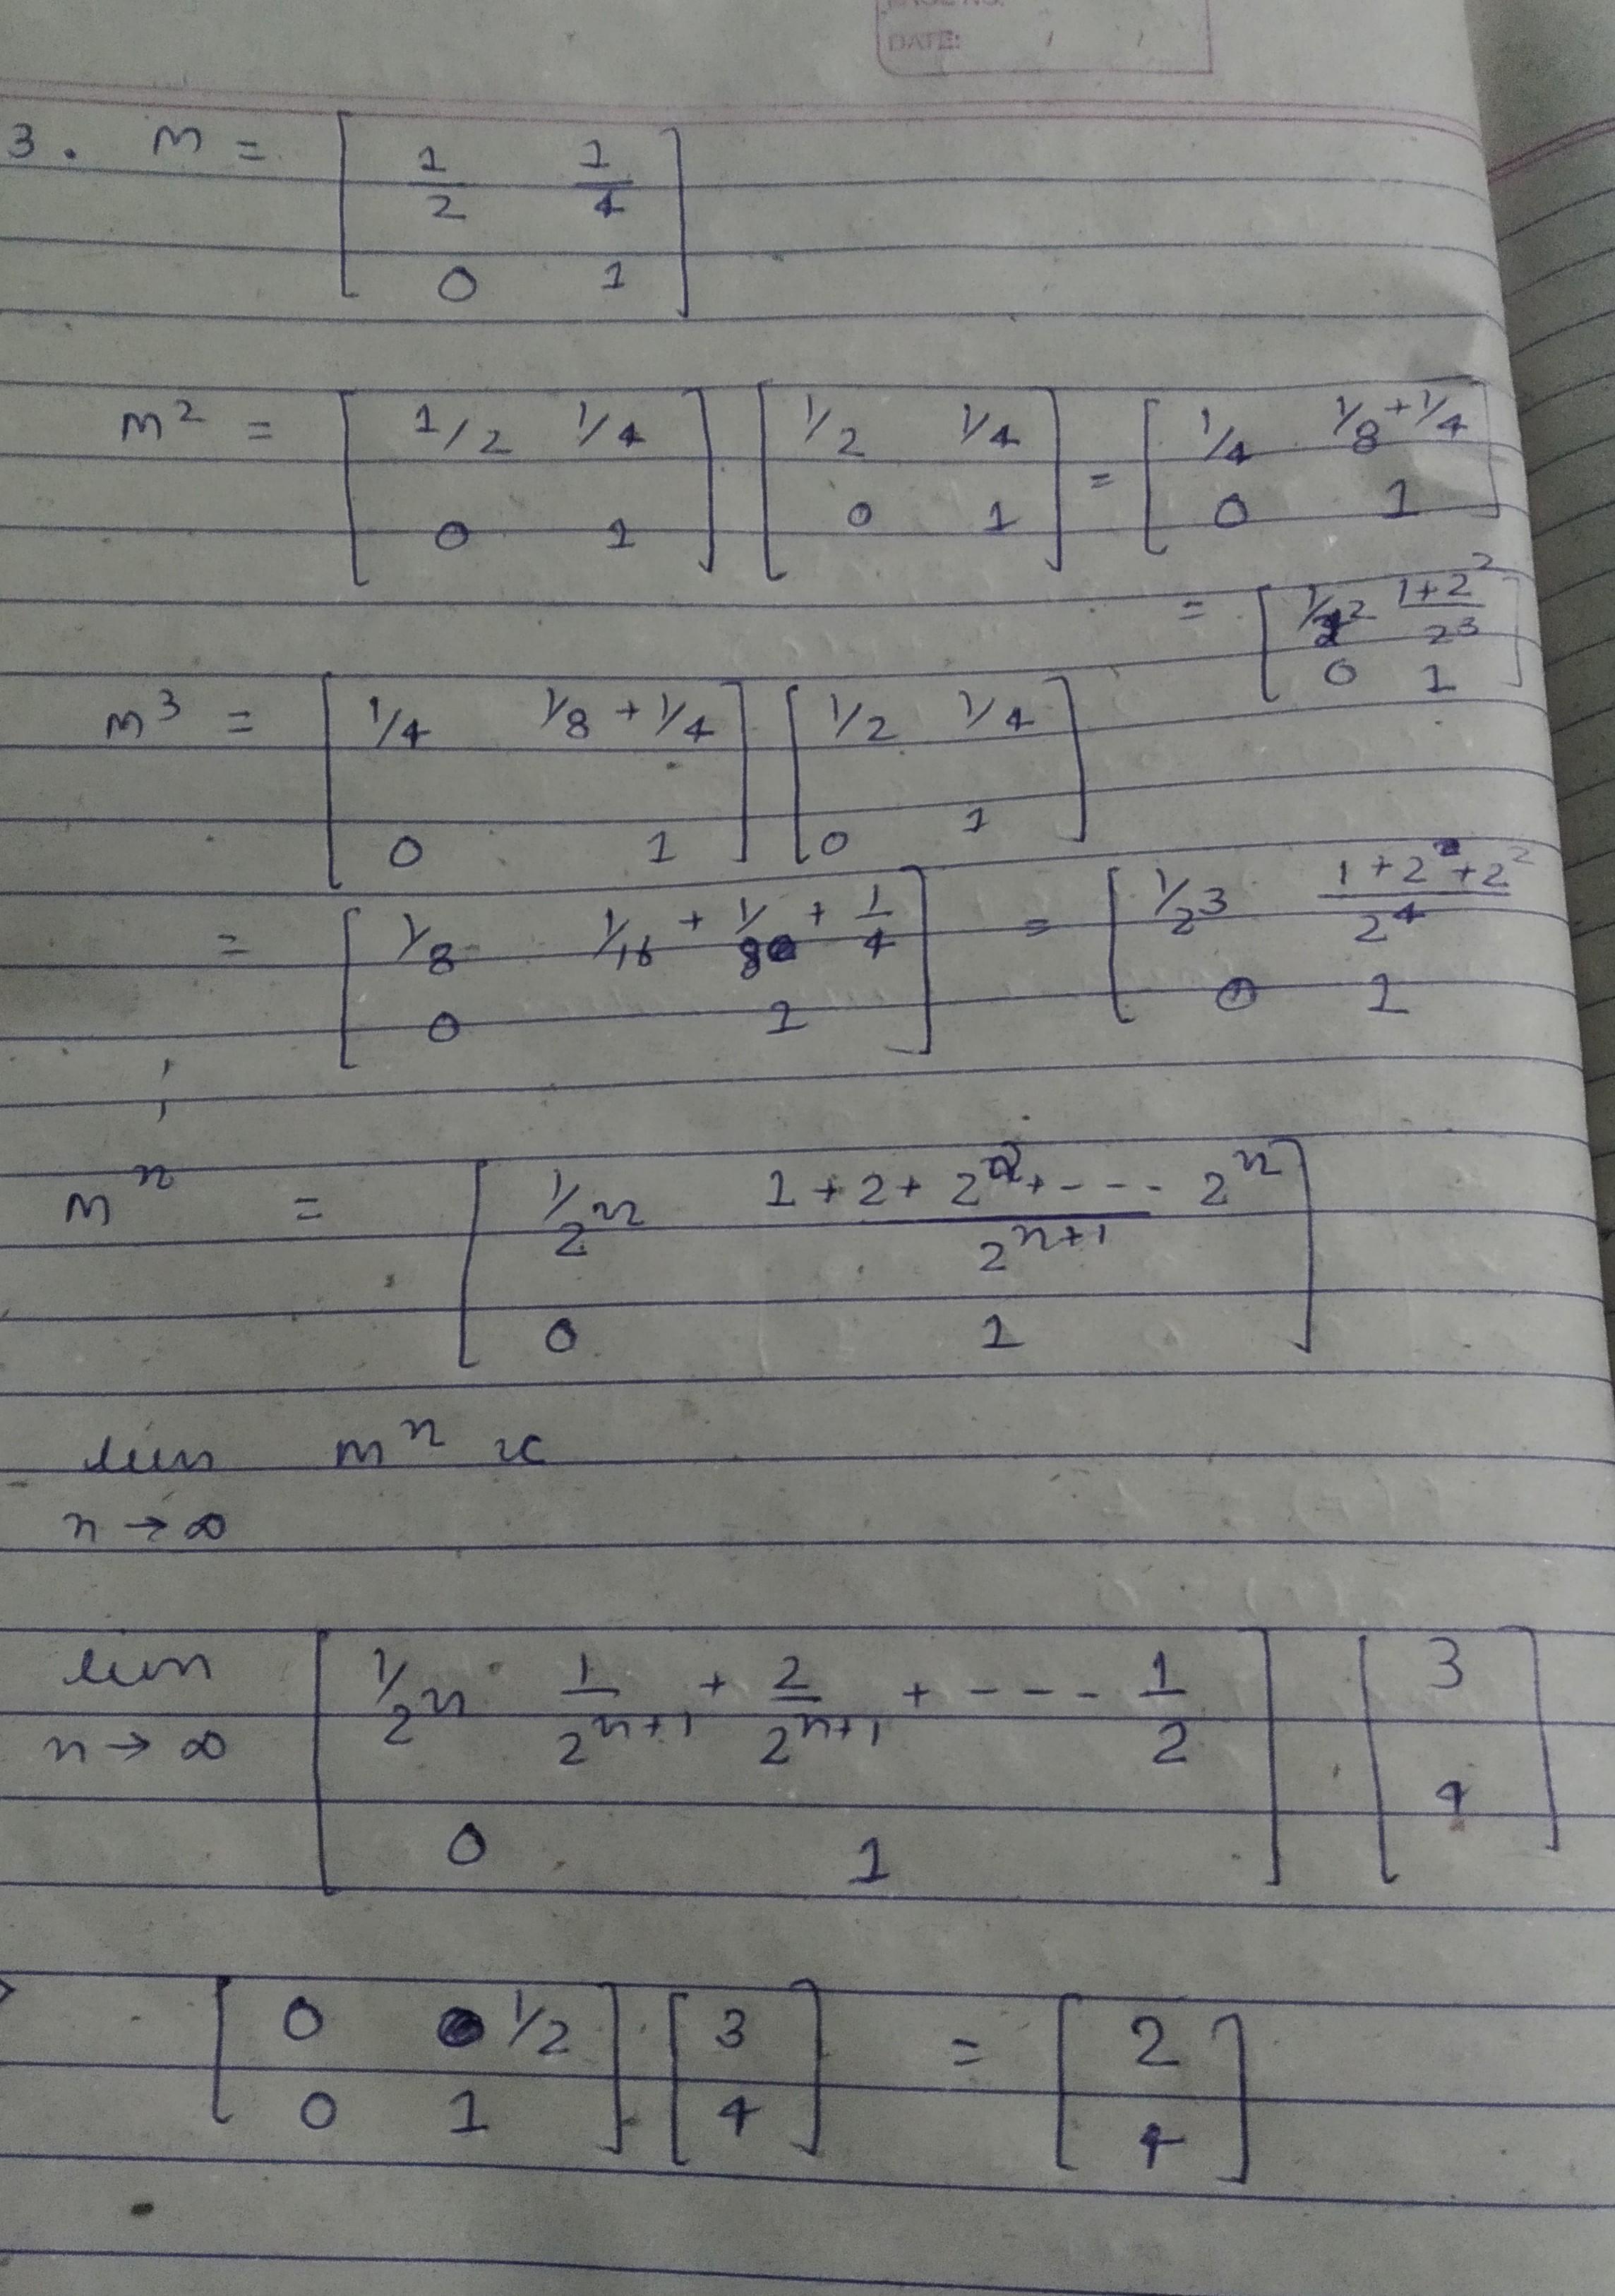 DATE:
3. m = [ 1/2 1/4
0 1 ]
m² = [ 1/2 1/4 ] [ 1/2 1/4 ] = [ 1/4 1/8 + 1/4 ]
[ 0 1 ] [ 0 1 ] [ 0 1 ]
= [ 1/2² (1+2)²/2³
0 1 ]
m³ = [ 1/4 1/8 + 1/4 ] [ 1/2 1/4 ]
[ 0 1 ] [ 0 1 ]
= [ 1/8 1/16 + 1/8 + 1/4 ] = [ 1/2³ (1+2+2²)/2⁴ ]
[ 0 1 ] [ 0 1 ]
mⁿ = [ 1/2ⁿ (1+2+2²+---- 2ⁿ)/2ⁿ⁺¹
0 1 ]
lim mⁿ x
n→∞
lim [ 1/2ⁿ 1/2ⁿ⁺¹ + 2/2ⁿ⁺¹ + ---- 1/2 ] [ 3 ]
n→∞ [ 0 1 ] [ 4 ]
[ 0 1/2 ] [ 3 ] = [ 2 ]
[ 0 1 ] [ 4 ] [ 4 ]